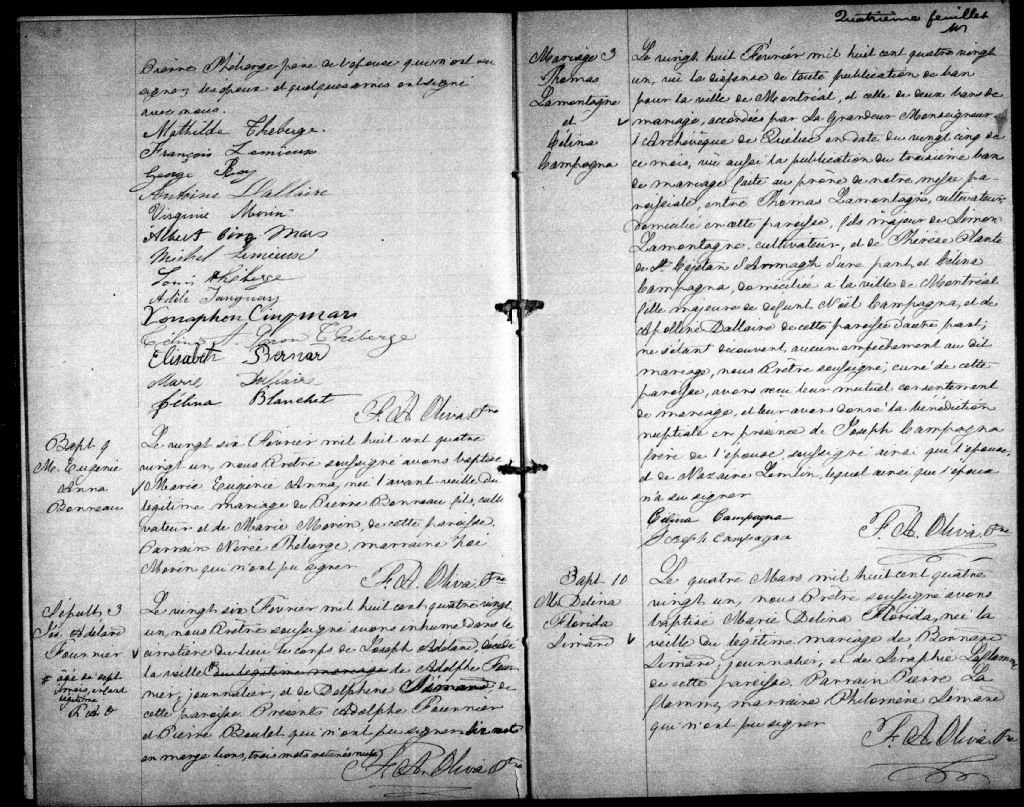 Pierre Théberge père de l'épouse qui n'ont su
signer, les époux et quelques amis ont signé
avec nous.
Mathilde Theberge.
François Lemieux
George Roy
Antoine Dallaire
Virginie Morin
Albert Cinq Mars
Michel Lemieux
Louis Théberge
Adèle Tanguay
Xenophon Cinqmars
Célina Théberge
Elisabeth Bernar
Marie Dallaire
félina Blanchet
F. A. Oliva Ptre
Bapt 9
M. Eugénie
Anna
Bonneau
Le vingt six Février mil huit cent quatre
vingt un, nous Prêtre soussigné avons baptisé
Marie Eugenie Anna, née l'avant veille du
légitime mariage de Pierre Bonneau fils, culti
vateur et de Marie Morin, de cette paroisse.
Parrain Nérée Théberge, marraine Zoé
Morin qui n'ont pu signer
F. A. Oliva Ptre
Sépult. 3
Jos. Adéland
Fournier
# agé de sept
mois, enfant
légitime
Le vingt six Février mil huit cent quatre vingt
un, nous Prêtre soussigné avons inhumé dans le
cimetière du lieu le corps de Joseph Adéland, décédé
la veille # du légitime mariage de Adolphe Four
nier, journalier, et de Delphine Simard, de
cette paroisse. Présents Adolphe Fournier
et Pierre Boulet qui n'ont pu signer. six mots
en marge bons, trois mots raturés nuls
F. A. Oliva Ptre
Quatrième feuillet
Mariage 3
Thomas
Lamontagne
et
Célina
Campagna
Le vingt huit Février mil huit cent quatre vingt
un, vu la dispense de toute publication de ban
pour la ville de Montréal, et celle de deux bans de
mariage, accordées par Sa Grandeur Monseigneur
l'Archevêque de Québec en date du vingt cinq de
ce mois, vu aussi la publication du troisième ban
de mariage faite au prône de notre messe pa-
roissiale, entre Thomas Lamontagne, cultivateur,
domicilié en cette paroisse, fils majeur de Simon
Lamontagne, cultivateur, et de Thérèse Plante
de St Cajetan d'Armagh d'une part, et Célina
Campagna, domiciliée à la ville de Montréal
fille majeure de defunt Noël Campagna, et de
Apolline Dallaire de cette paroisse d'autre part;
ne s'étant découvert aucun empêchement au dit
mariage, nous Prêtre soussigné, curé de cette
paroisse, avons reçu leur mutuel consentement
de mariage, et leur avons donné la bénédiction
nuptiale en présence de Joseph Campagna
frère de l'épouse, soussigné ainsi que l'épouse,
et de Nazaire lequel ainsi que l'époux
n'a su signer
Célina Campagna
Joseph Campagna
F. A. Oliva Ptre
Bapt. 10
M. Delina
Florida
Simard
Le quatre Mars mil huit cent quatre
vingt un, nous Prêtre soussigné avons
baptisé Marie Delina Florida, née la
veille du légitime mariage de Bernard
Simard, journalier, et de Séraphie Laflamme
de cette paroisse. Parrain Pierre La
flamme, marraine Philomène Simard
qui n'ont pu signer
F. A. Oliva Ptre